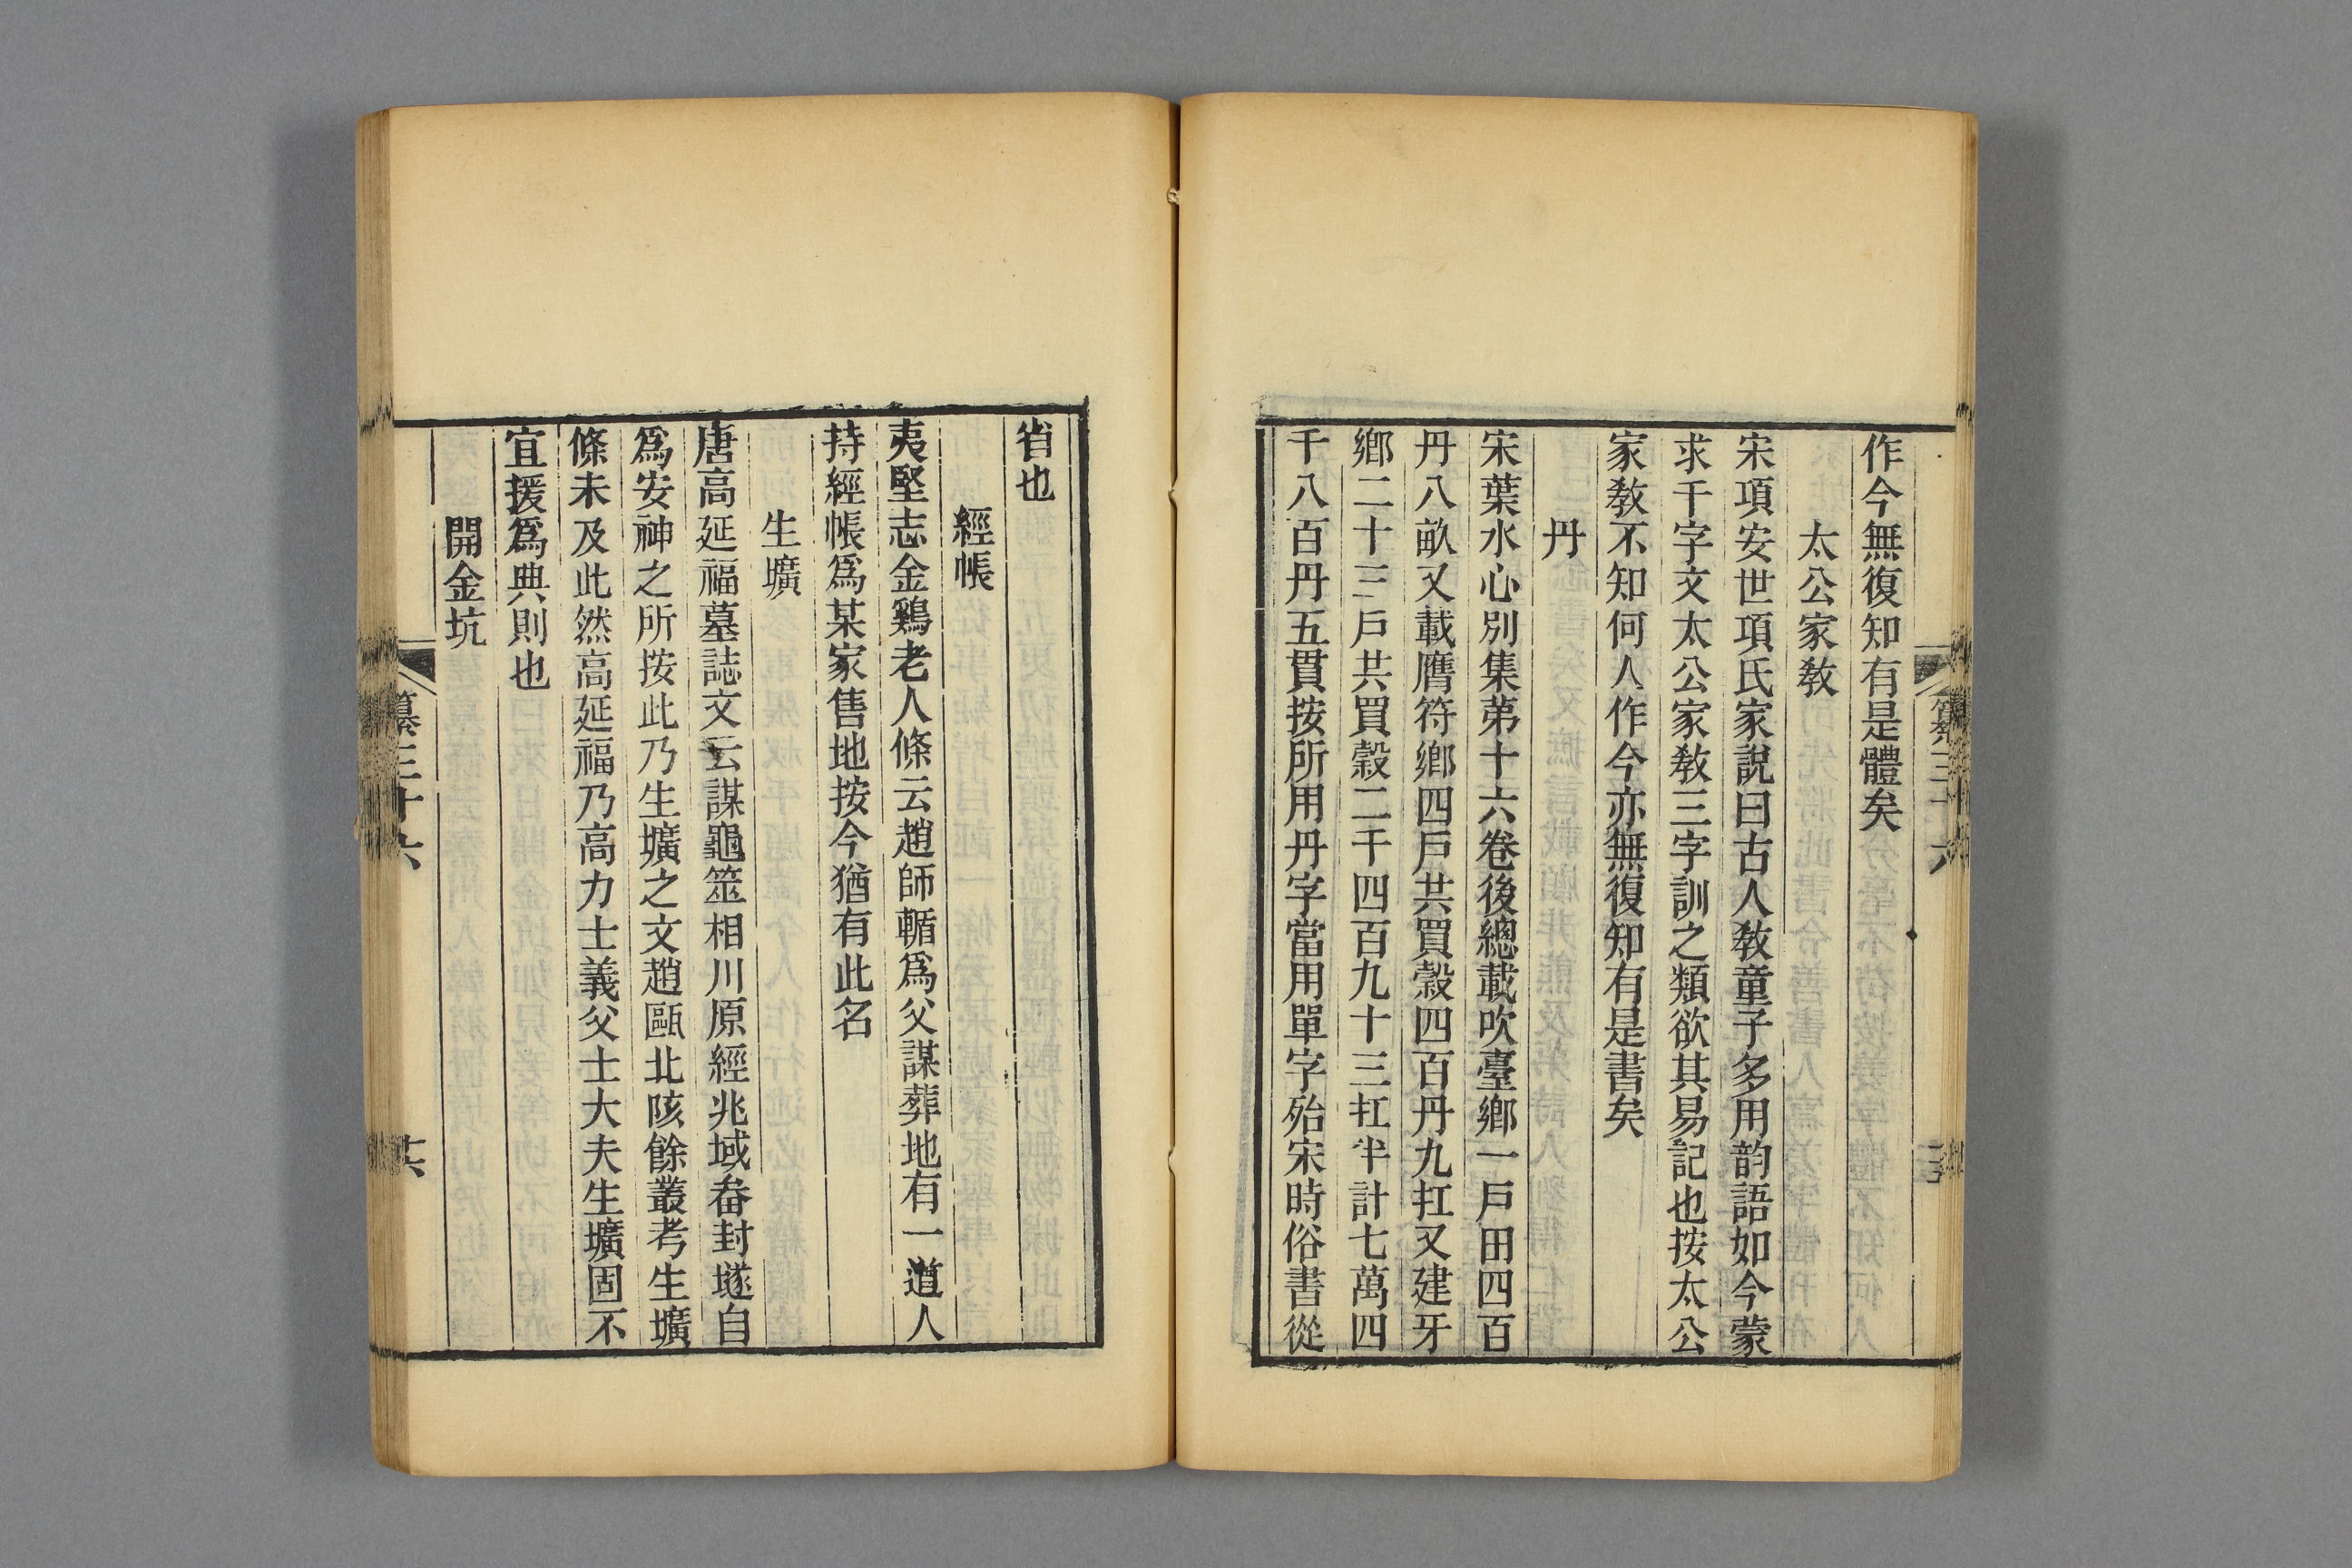 作今無復知有是體矣
太公家敎
宋項安世項氏家說曰古人敎童子多用韵語如今蒙
求千字文太公家敎三字訓之類欲其易記也按太公
家敎不知何人作今亦無復知有是書矣
丹
宋葉水心別集第十六卷後總載吹臺鄉一戶田四百
丹八畝又載膺符鄉四戶共買穀四百丹九扛又建牙
鄉二十三戶共買穀二千四百九十三扛半計七萬四
千八百丹五貫按所用丹字當用單字殆宋時俗書從
省也
經帳
夷堅志金鷄老人條云趙師輴爲父謀葬地有一道人
持經帳爲某家售地按今猶有此名
生壙
唐高延福墓誌文云謀龜筮相川原經兆域畚封墜自
爲安神之所按此乃生壙之文趙甌北陔餘叢考生壙
條未及此然高延福乃高力士義父士大夫生壙固不
宜援爲典則也
開金坑
纂三十六
十六